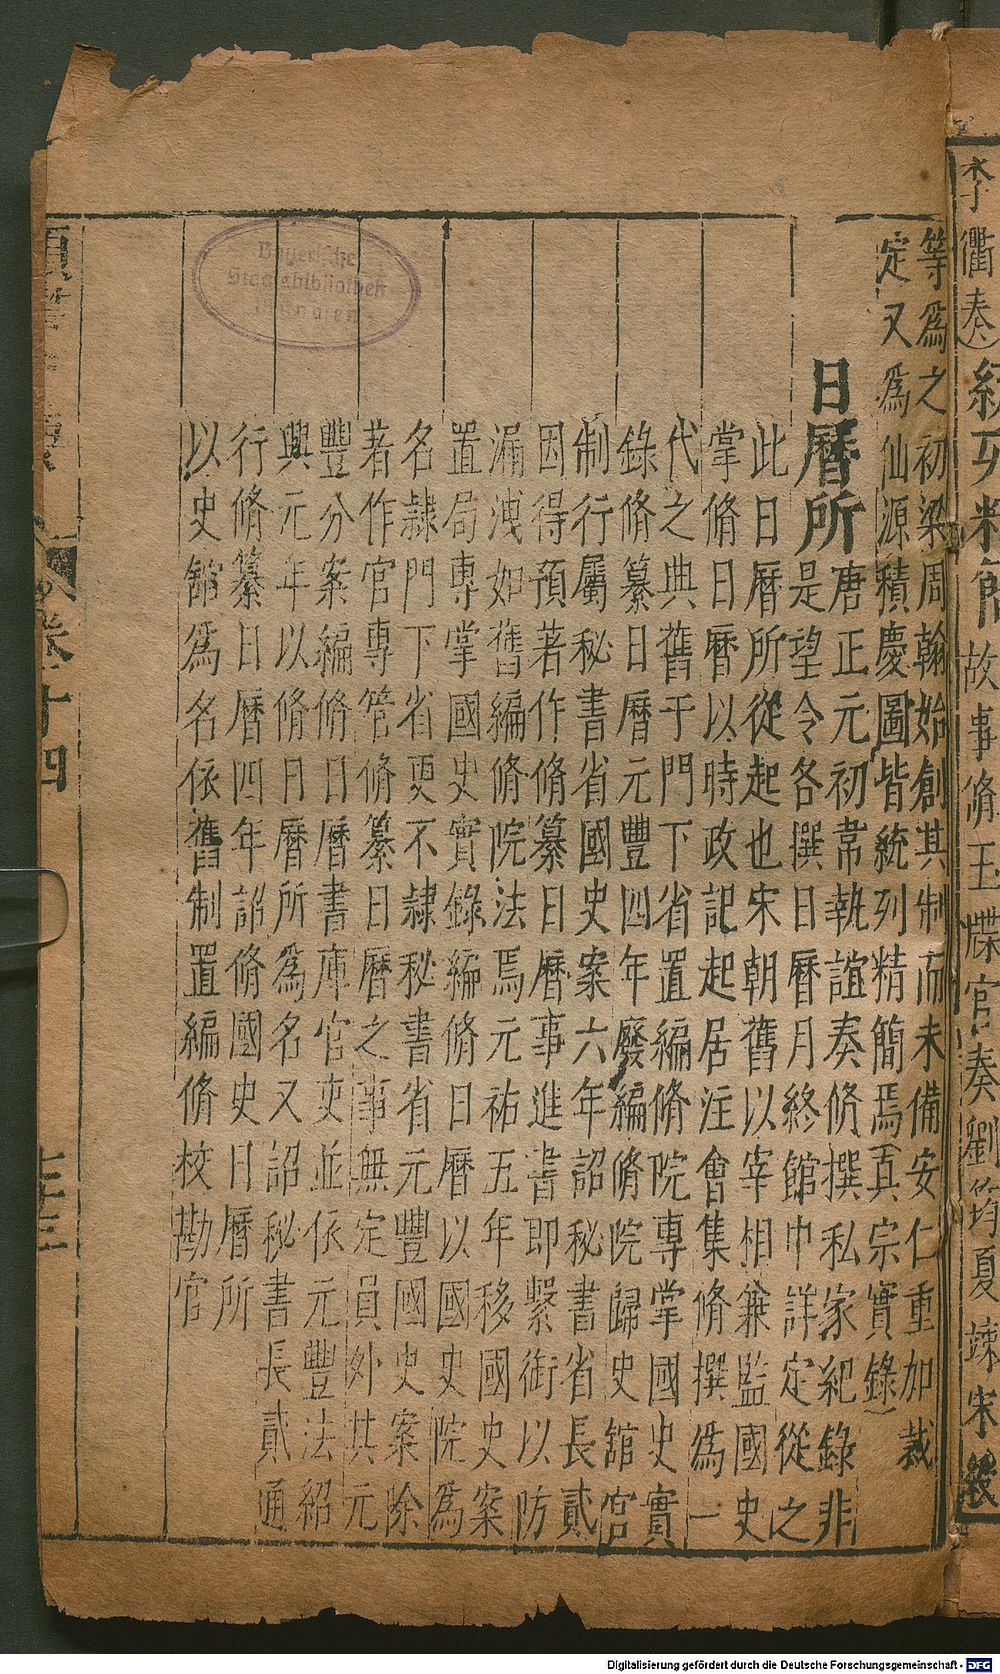 李衢奏
經歹精簡故事脩玉牒官奏劉筠夏竦宋綬
等爲之初梁周翰始創其制而未備安仁重加裁
定又爲仙源積慶圖皆統列精簡焉真宗實錄
日曆所
唐正元初常執誼奏脩撰私家紀錄非
是望令各撰日曆月終館中詳定從之
此日曆所從起也宋朝舊以宰相兼監國史
掌脩日曆以時政記起居注會集脩撰爲一
代之典舊于門下省置編脩院專掌國史實
錄脩纂日曆元豐四年廢編脩院歸史館官
制行屬秘書省國史案六年詔秘書省長貳
因得預著作脩纂日曆事進書即繫銜以防
漏洩如舊編脩院法焉元祐五年移國史案
置局專掌國史實錄編脩日曆以國史院爲
名隷門下省更不隷秘書省元豐國史案除
著作官專管脩纂日曆之事無定員外其元
豐分案編脩日曆書庫官吏並依元豐法紹
興元年以脩日曆所爲名又詔秘書長貳通
行脩纂日曆四年詔脩國史日曆所
以史館爲名依舊制置編脩校勘官
卷十四
Bayerische
Staatsbibliothek
München
Digitalisierung gefördert durch die Deutsche Forschungsgemeinschaft - DFG